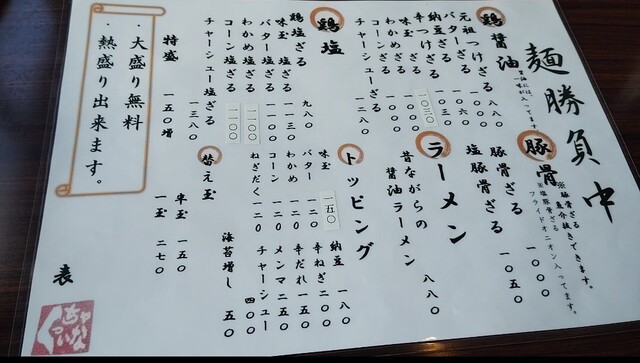 麺勝負中
鶏醤油
醤油には、
一味が入ってます。
元祖つけざる 八八〇
バターざる 一〇〇〇
納豆ざる 一〇六〇
辛つけざる 一〇三〇
味玉ざる 一〇三〇
わかめざる 一〇〇〇
コーンざる 一〇〇〇
チャーシューざる 一二八〇
鶏塩
鶏塩ざる 九八〇
味玉 塩ざる 一一三〇
バター塩ざる 一一〇〇
わかめ塩ざる 一一〇〇
コーン塩ざる 一一〇〇
チャーシュー塩ざる 一三八〇
特盛 一五〇増
豚骨
※豚骨ざる 魚介抜きできます。
※塩豚骨ざる フライドオニオン入ってます。
豚骨ざる 一〇〇〇
塩豚骨ざる 一〇五〇
ラーメン
昔ながらの
醤油ラーメン 八八〇
トッピング
味玉 一五〇
バター 一二〇
わかめ 一二〇
コーン 一二〇
ねぎだく 一二〇
納豆 一八〇
辛ねぎ 二〇〇
辛だれ 一五〇
メンマ 二五〇
チャーシュー 四〇〇
海苔増し 五〇
替え玉
半玉 一五〇
一玉 二七〇
・大盛り無料
・熱盛り出来ます。
表